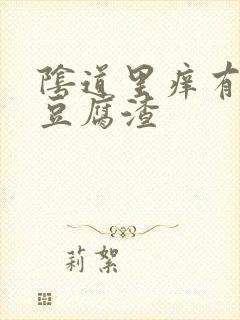 陰道里痒有
豆腐渣
莉絮